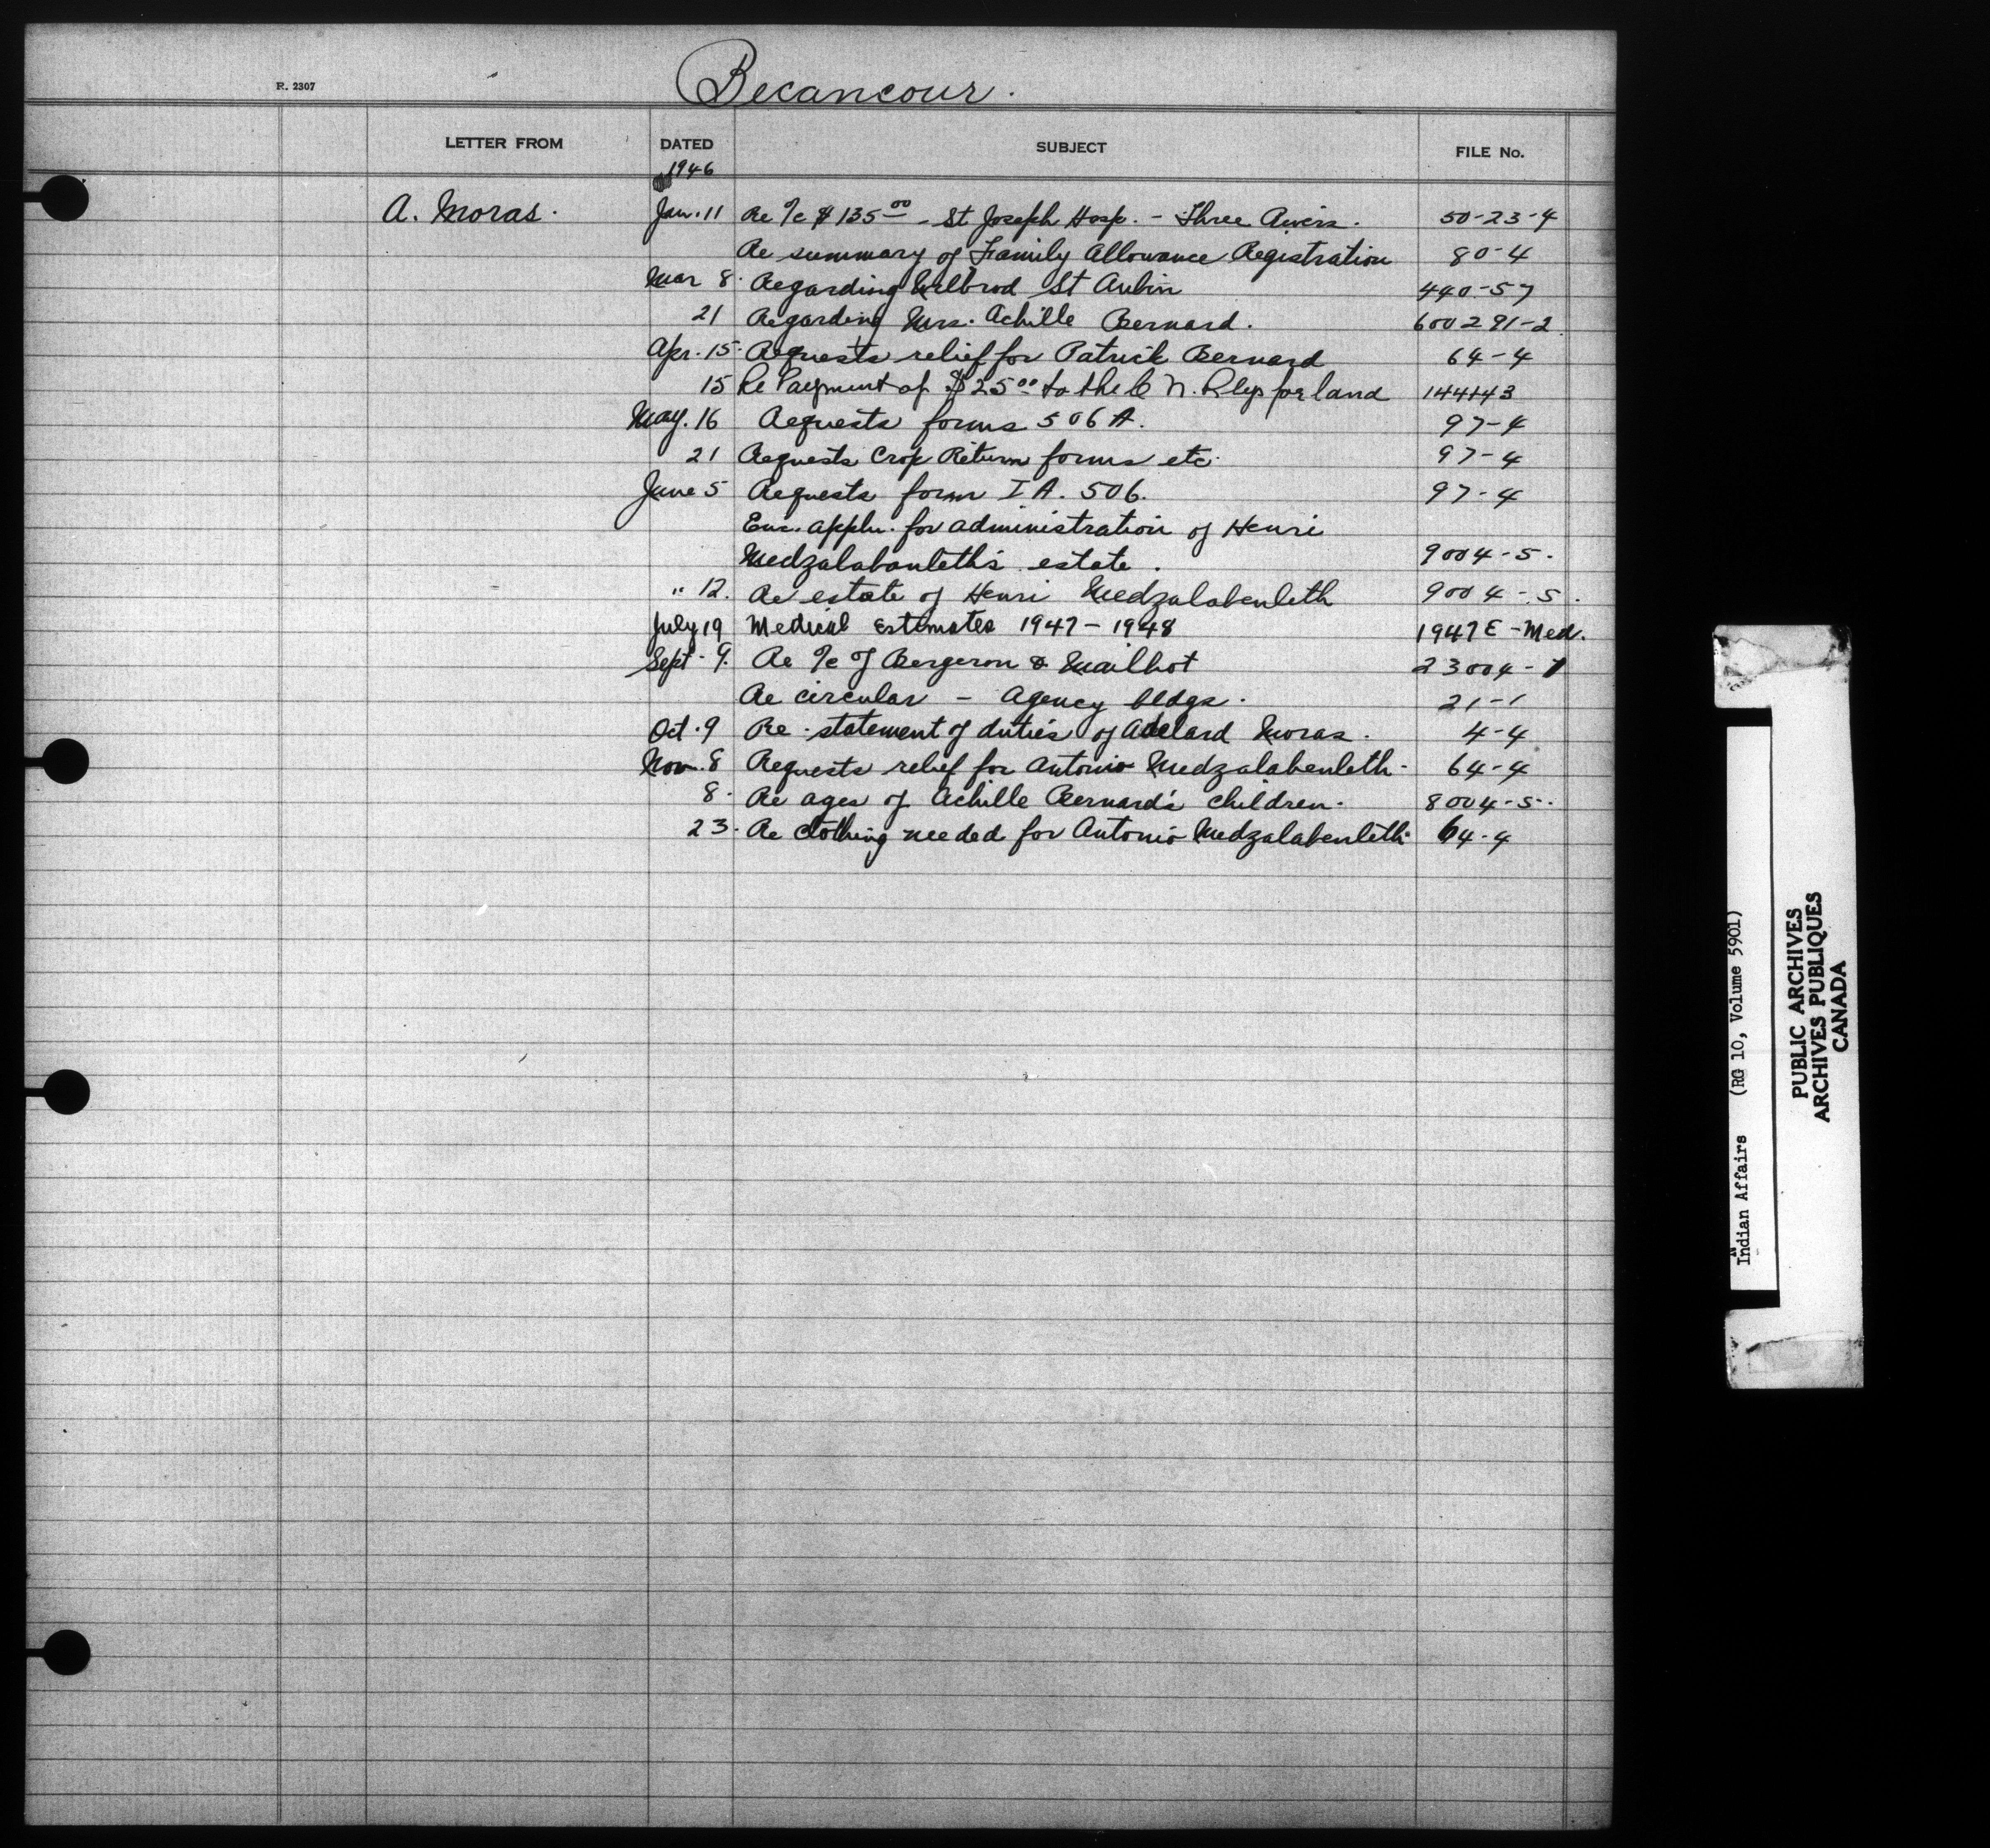 Becancour.
R. 2307
LETTER FROM DATED SUBJECT FILE No.
1946
A. Moras. Jan. 11 Re %c $135 00 - St Joseph Hosp. - Three Rivers. 50-23-4
Re summary of Family Allowance Registration 80-4
Mar 8. Regarding Wilbrod St Aubin 440-57
21 Regarding Mrs. Achille Bernard. 600291-2
Apr. 15. Requests relief for Patrick Bernard 64-4
15 Re Payment of $25 00 to the C N. Rlys for land 144143
May. 16 Requests forms 506 A. 97-4
21 Requests Crop Return forms etc. 97-4
June 5 Requests form I A. 506. 97-4
Enc. appln. for administration of Henri
Medzalabanleth's estate. 9004-5.
" 12. Re estate of Henri Medzalabenleth 9004-5.
July 19 Medical Estimates 1947-1948 1947 E-Med.
Sept. 9. Re %c of Bergeron & Mailhot 23004-1
Re circular - Agency bldgs. 21-1
Oct. 9 Re. statement of duties of Adelard Moras. 4-4
Nov. 8 Requests relief for Antonio Medzalabenleth. 64-4
8. Re ages of Achille Bernard's children. 8004-5.
23. Re clothing needed for Antonio Medzalabenleth 64-4
Indian Affairs (RG 10, Volume 5901)
PUBLIC ARCHIVES
ARCHIVES PUBLIQUES
CANADA